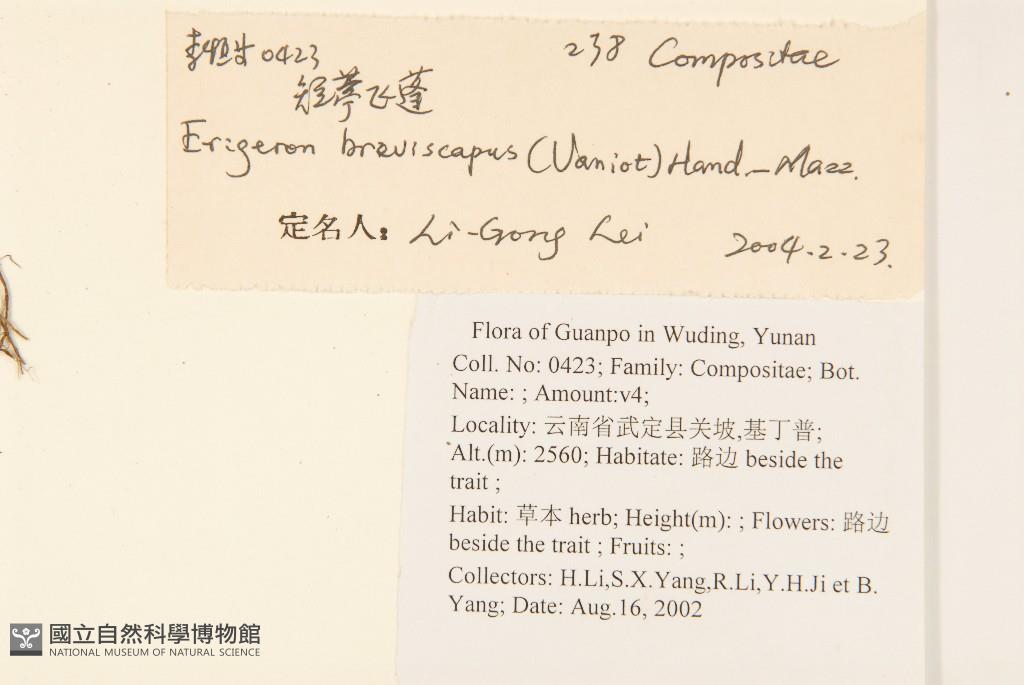 李恒生 0423 238 Compositae
短葶飞蓬
Erigeron breviscapus (Vaniot) Hand.-Mazz.
定名人: Li-Gong Lei 2004.2.23.
Flora of Guanpo in Wuding, Yunan
Coll. No: 0423; Family: Compositae; Bot.
Name: ; Amount:v4;
Locality: 云南省武定县关坡,基丁普;
Alt.(m): 2560; Habitate: 路边 beside the
trait ;
Habit: 草本 herb; Height(m): ; Flowers: 路边
beside the trait ; Fruits: ;
Collectors: H.Li,S.X.Yang,R.Li,Y.H.Ji et B.
Yang; Date: Aug.16, 2002
國立自然科學博物館
NATIONAL MUSEUM OF NATURAL SCIENCE